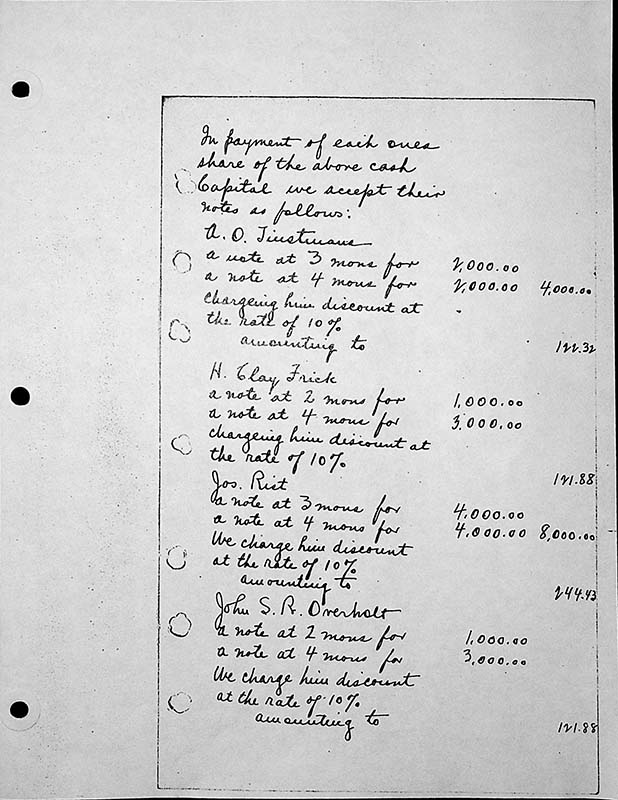 In payment of each ones
share of the above cash
Capital we accept their
notes as follows:
A. O. Tinstmans
a note at 3 mons for 2,000.00
a note at 4 mons for 2,000.00 4,000.00
chargeing him discount at
the rate of 10%
amounting to 122.32
H. Clay Frick
a note at 2 mons for 1,000.00
a note at 4 mons for 3,000.00
chargeing him discount at
the rate of 10% 121.88
Jos. Rist
a note at 3 mons for 4,000.00
a note at 4 mons for 4,000.00 8,000.00
We charge him discount
at the rate of 10%
amounting to 244.43
John S. R. Overholt
a note at 2 mons for 1,000.00
a note at 4 mons for 3,000.00
We charge him discount
at the rate of 10%
amounting to 121.88